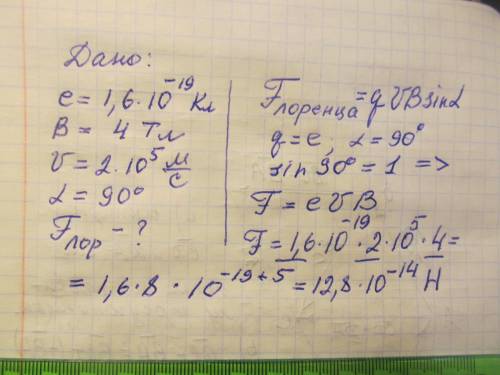 Дано:
e = 1,6·10⁻¹⁹ Кл
B = 4 Тл
V = 2·10⁵ м/с
α = 90°
Fлор – ?
Fлоренца = qVBsinα
q = e, α = 90°
sin 90° = 1 =>
F = eVB
F = 1,6·10⁻¹⁹·2·10⁵·4 =
= 1,6·8·10⁻¹⁹⁺⁵ = 12,8·10⁻¹⁴ Н